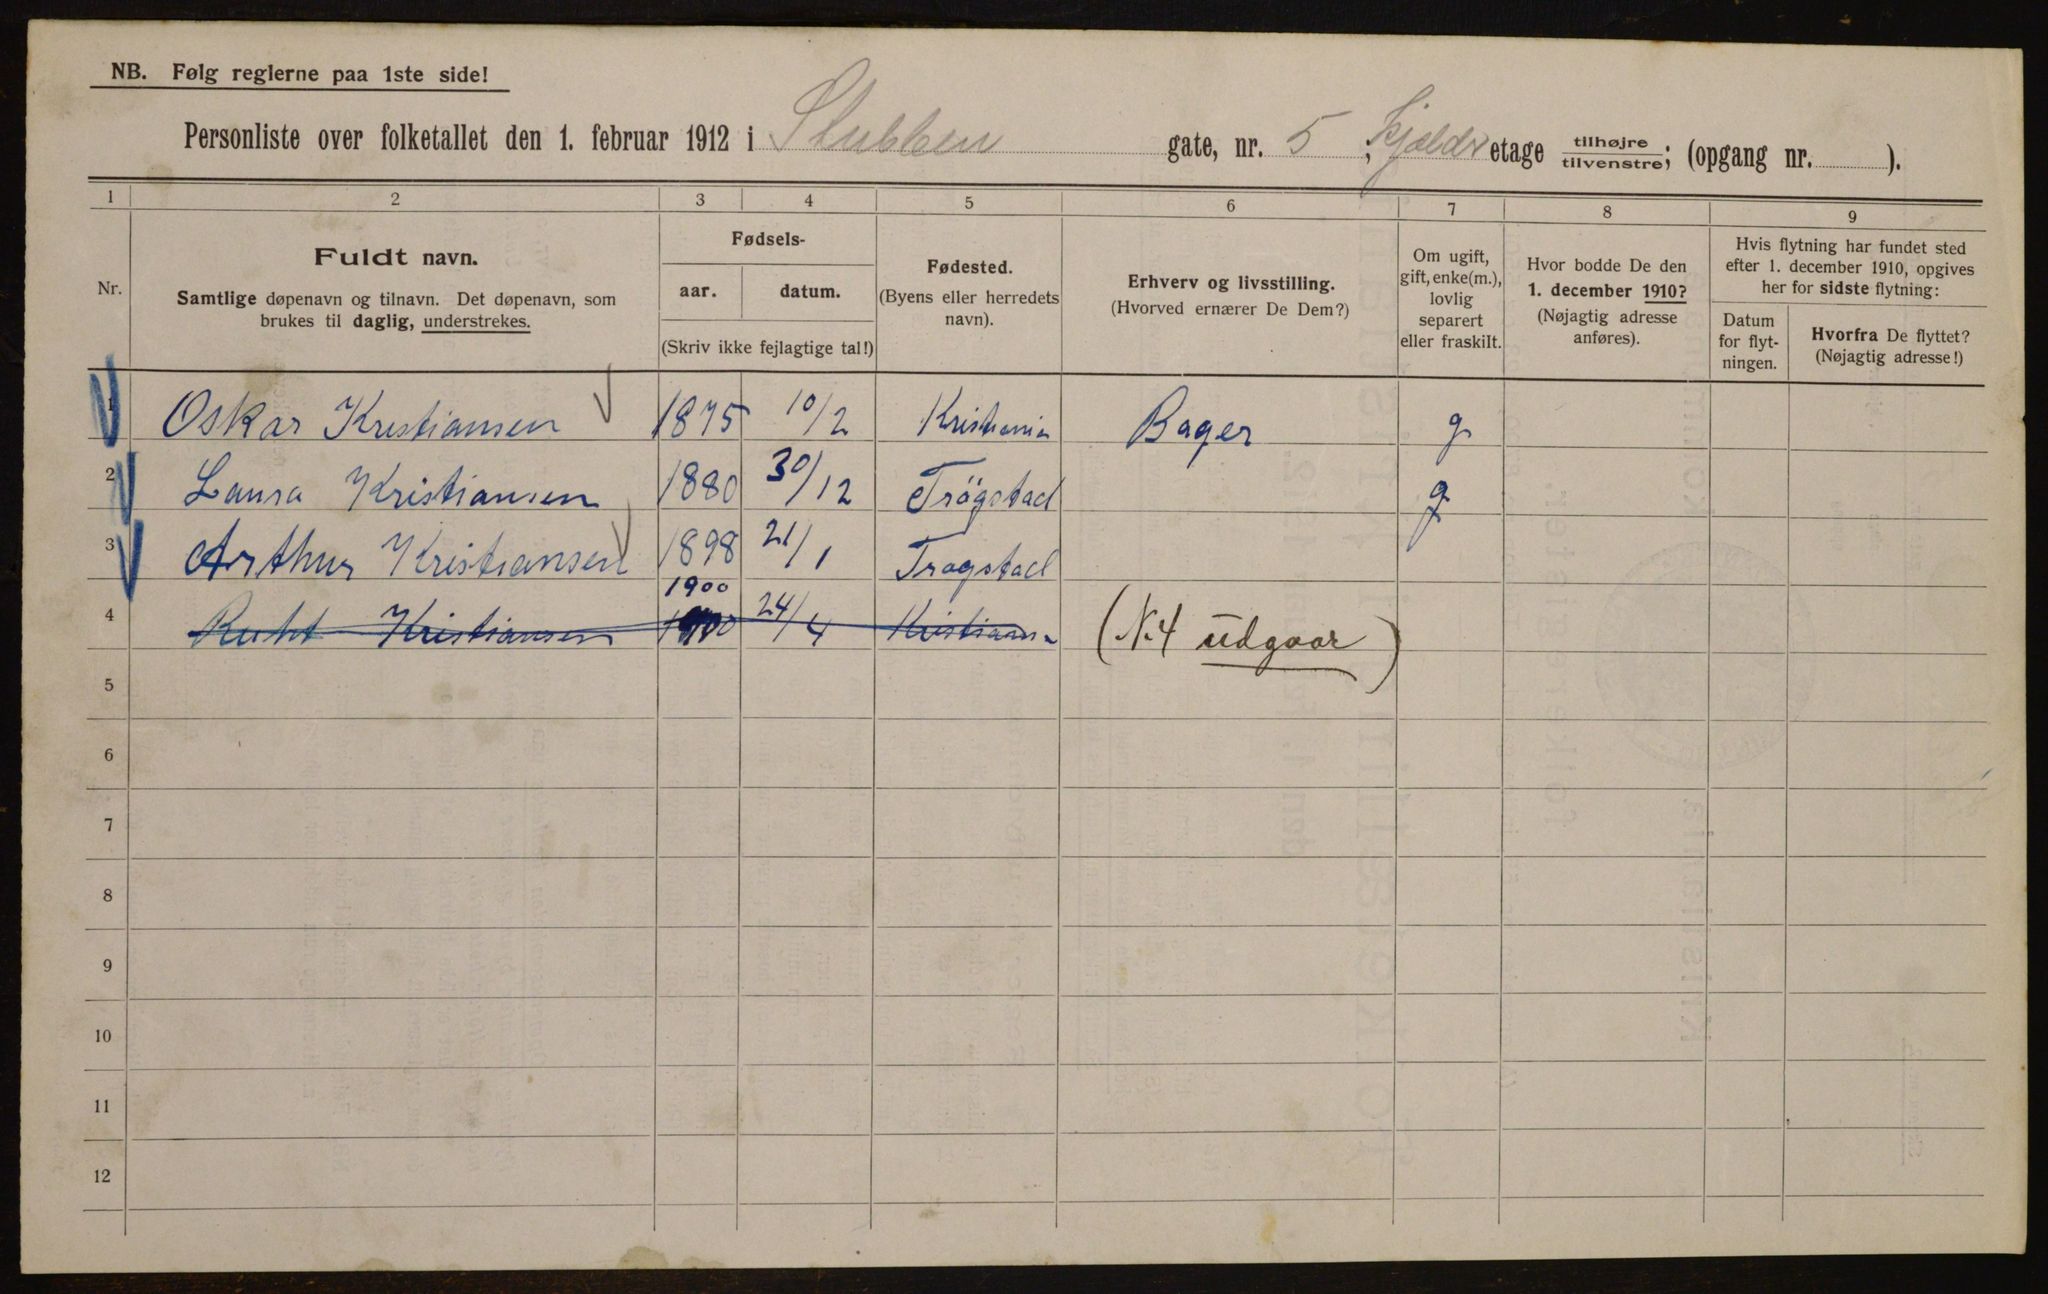 NB. Følg reglerne paa 1ste side!
Personliste over folketallet den 1. februar 1912 i Stubben gate, nr. 5; Kjelder etage tilhøjre tilvenstre; (opgang nr. ).
1 2 3 4 5 6 7 8 9
Nr.
Fuldt navn.
Samtlige døpenavn og tilnavn. Det døpenavn, som
brukes til daglig, understrekes.
Fødsels-
aar. datum.
(Skriv ikke fejlagtige tal!)
Fødested.
(Byens eller herredets
navn).
Erhverv og livsstilling.
(Hvorved ernærer De Dem?)
Om ugift,
gift, enke(m.),
lovlig
separert
eller fraskilt.
Hvor bodde De den
1. december 1910?
(Nøjagtig adresse
anføres).
Hvis flytning har fundet sted
efter 1. december 1910, opgives
her for sidste flytning:
Datum
for flyt-
ningen.
Hvorfra De flyttet?
(Nøjagtig adresse!)
1 Oskar Kristiansen 1875 10/2 Kristiania Bager g
2 Laura Kristiansen 1880 30/12 Trögstad g
3 Arthur Kristiansen 1898 21/1 Trogstad
1900
4 Ruht Kristiansen 1900 24/4 Kristiania (N.4 udgaar)
5
6
7
8
9
10
11
12